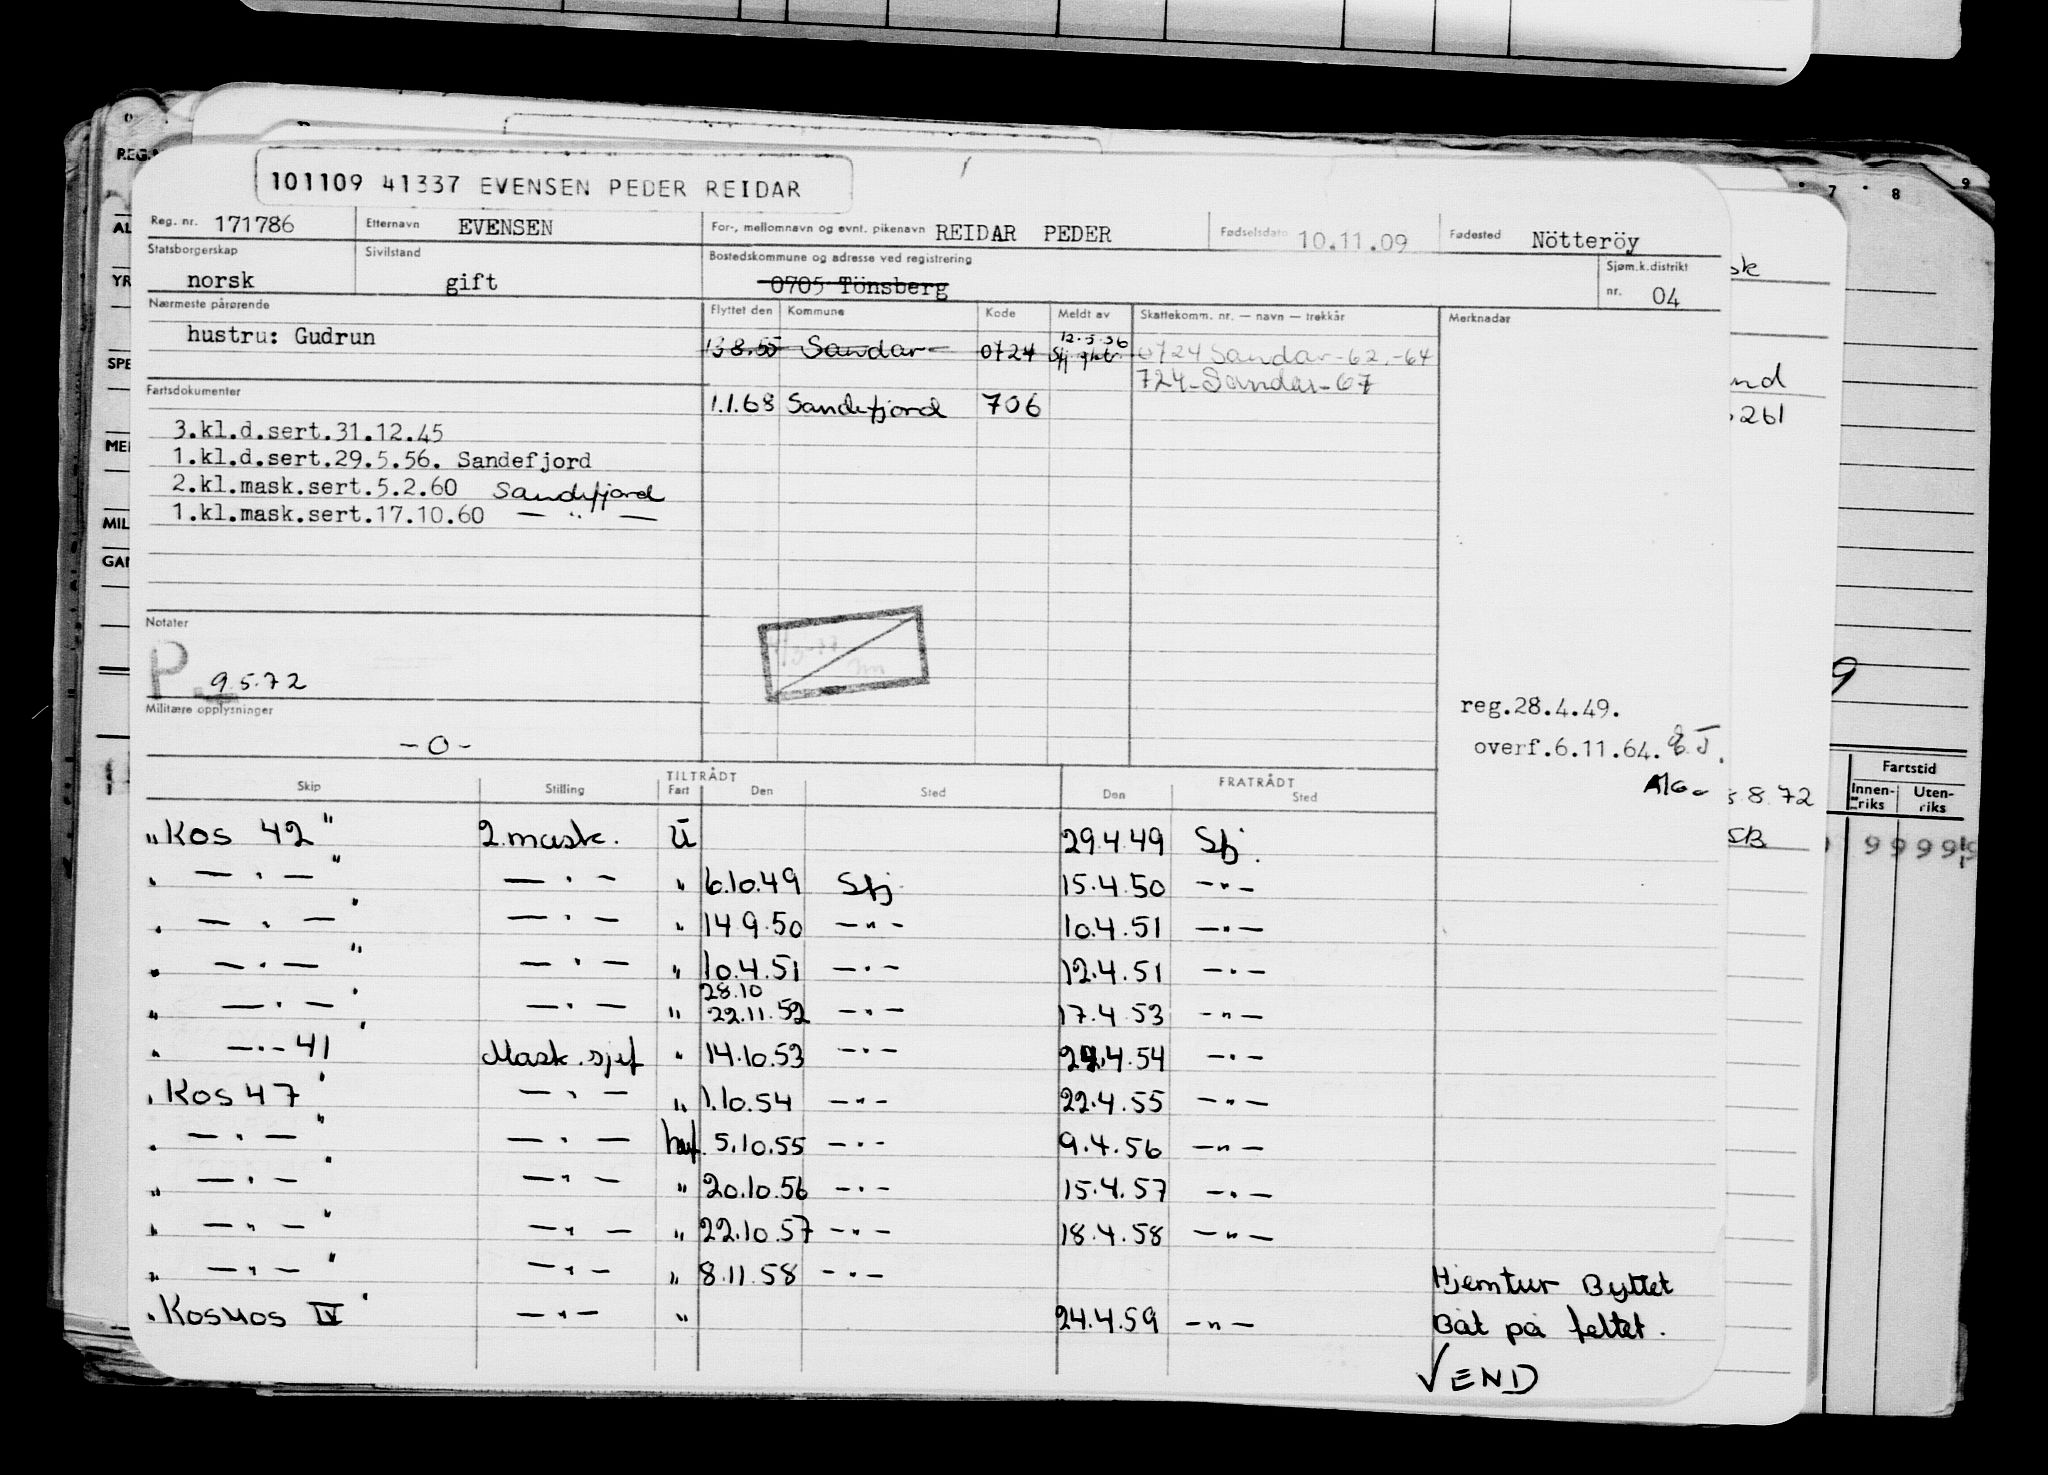 101109 41337 EVENSEN PEDER REIDAR
Reg. nr. 171786 Etternavn EVENSEN For-, mellomnavn og evnt. pikenavn REIDAR PEDER Fødselsdato 10.11.09 Fødested Nötteröy
Statsborgerskap norsk Sivilstand gift Bostedskommune og adresse ved registrering 0705 Tönsberg Sjøm.k.distrikt nr. 04
Nærmeste pårørende
hustru: Gudrun
Flyttet den Kommune Kode Meldt av Skattekomm. nr. — navn — trekkår Merknader
13.8.55 Sandar 0724 12.5.56 0724 Sandar-62.-64
724-Sandar-67
1.1.68 Sandefjord 706
Fartsdokumenter
3.kl.d.sert.31.12.45
1.kl.d.sert.29.5.56. Sandefjord
2.kl.mask.sert.5.2.60 Sandefjord
1.kl.mask.sert.17.10.60 — " —
Notater
P. 9.5.72
Militære opplysninger
-0-
reg.28.4.49.
overf.6.11.64.
TILTRÅDT FRATRÅDT
Skip Stilling Fart Den Sted Den Sted
"Kos 42" 2.mask. U 29.4.49 Sfj.
" — " — " — " — " 6.10.49 Sfj 15.4.50 — " —
" — " — " — " — " 14.9.50 — " — 10.4.51 — " —
" — " — " — " — " 10.4.51 — " — 12.4.51 — " —
28.10
" — " — " — " — " 22.11.52 — " — 17.4.53 — " —
" — " — 41" Mask.sjef " 14.10.53 — " — 4.54 — " —
"Kos 47" — " — " 1.10.54 — " — 22.4.55 — " —
" — " — " — " — hvf. 5.10.55 — " — 9.4.56 — " —
" — " — " — " — " 20.10.56 — " — 15.4.57 — " —
" — " — " — " — " 22.10.57 — " — 18.4.58 — " —
" — " — " — " — " 8.11.58 — " — Hjemtur Byttet
"Kosmos IV" — " — " 24.4.59 — " — Båt på feltet.
VEND
REG.
AL
YR
SPE
MEI
MIL
GAN
7 8 9
nd
261
9
5.8.72
SB
Fartstid
Innenriks Utenriks
9 9 9 9